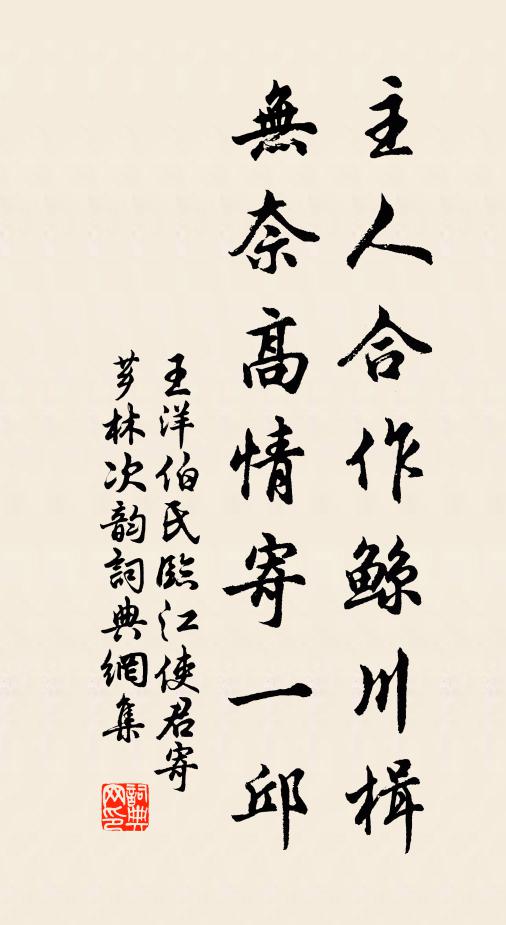 主人合作鲸川楫
無奈高情寄一邱
王洋伯氏臨江使君寄
芗林次韵詞典網集
詞典网印